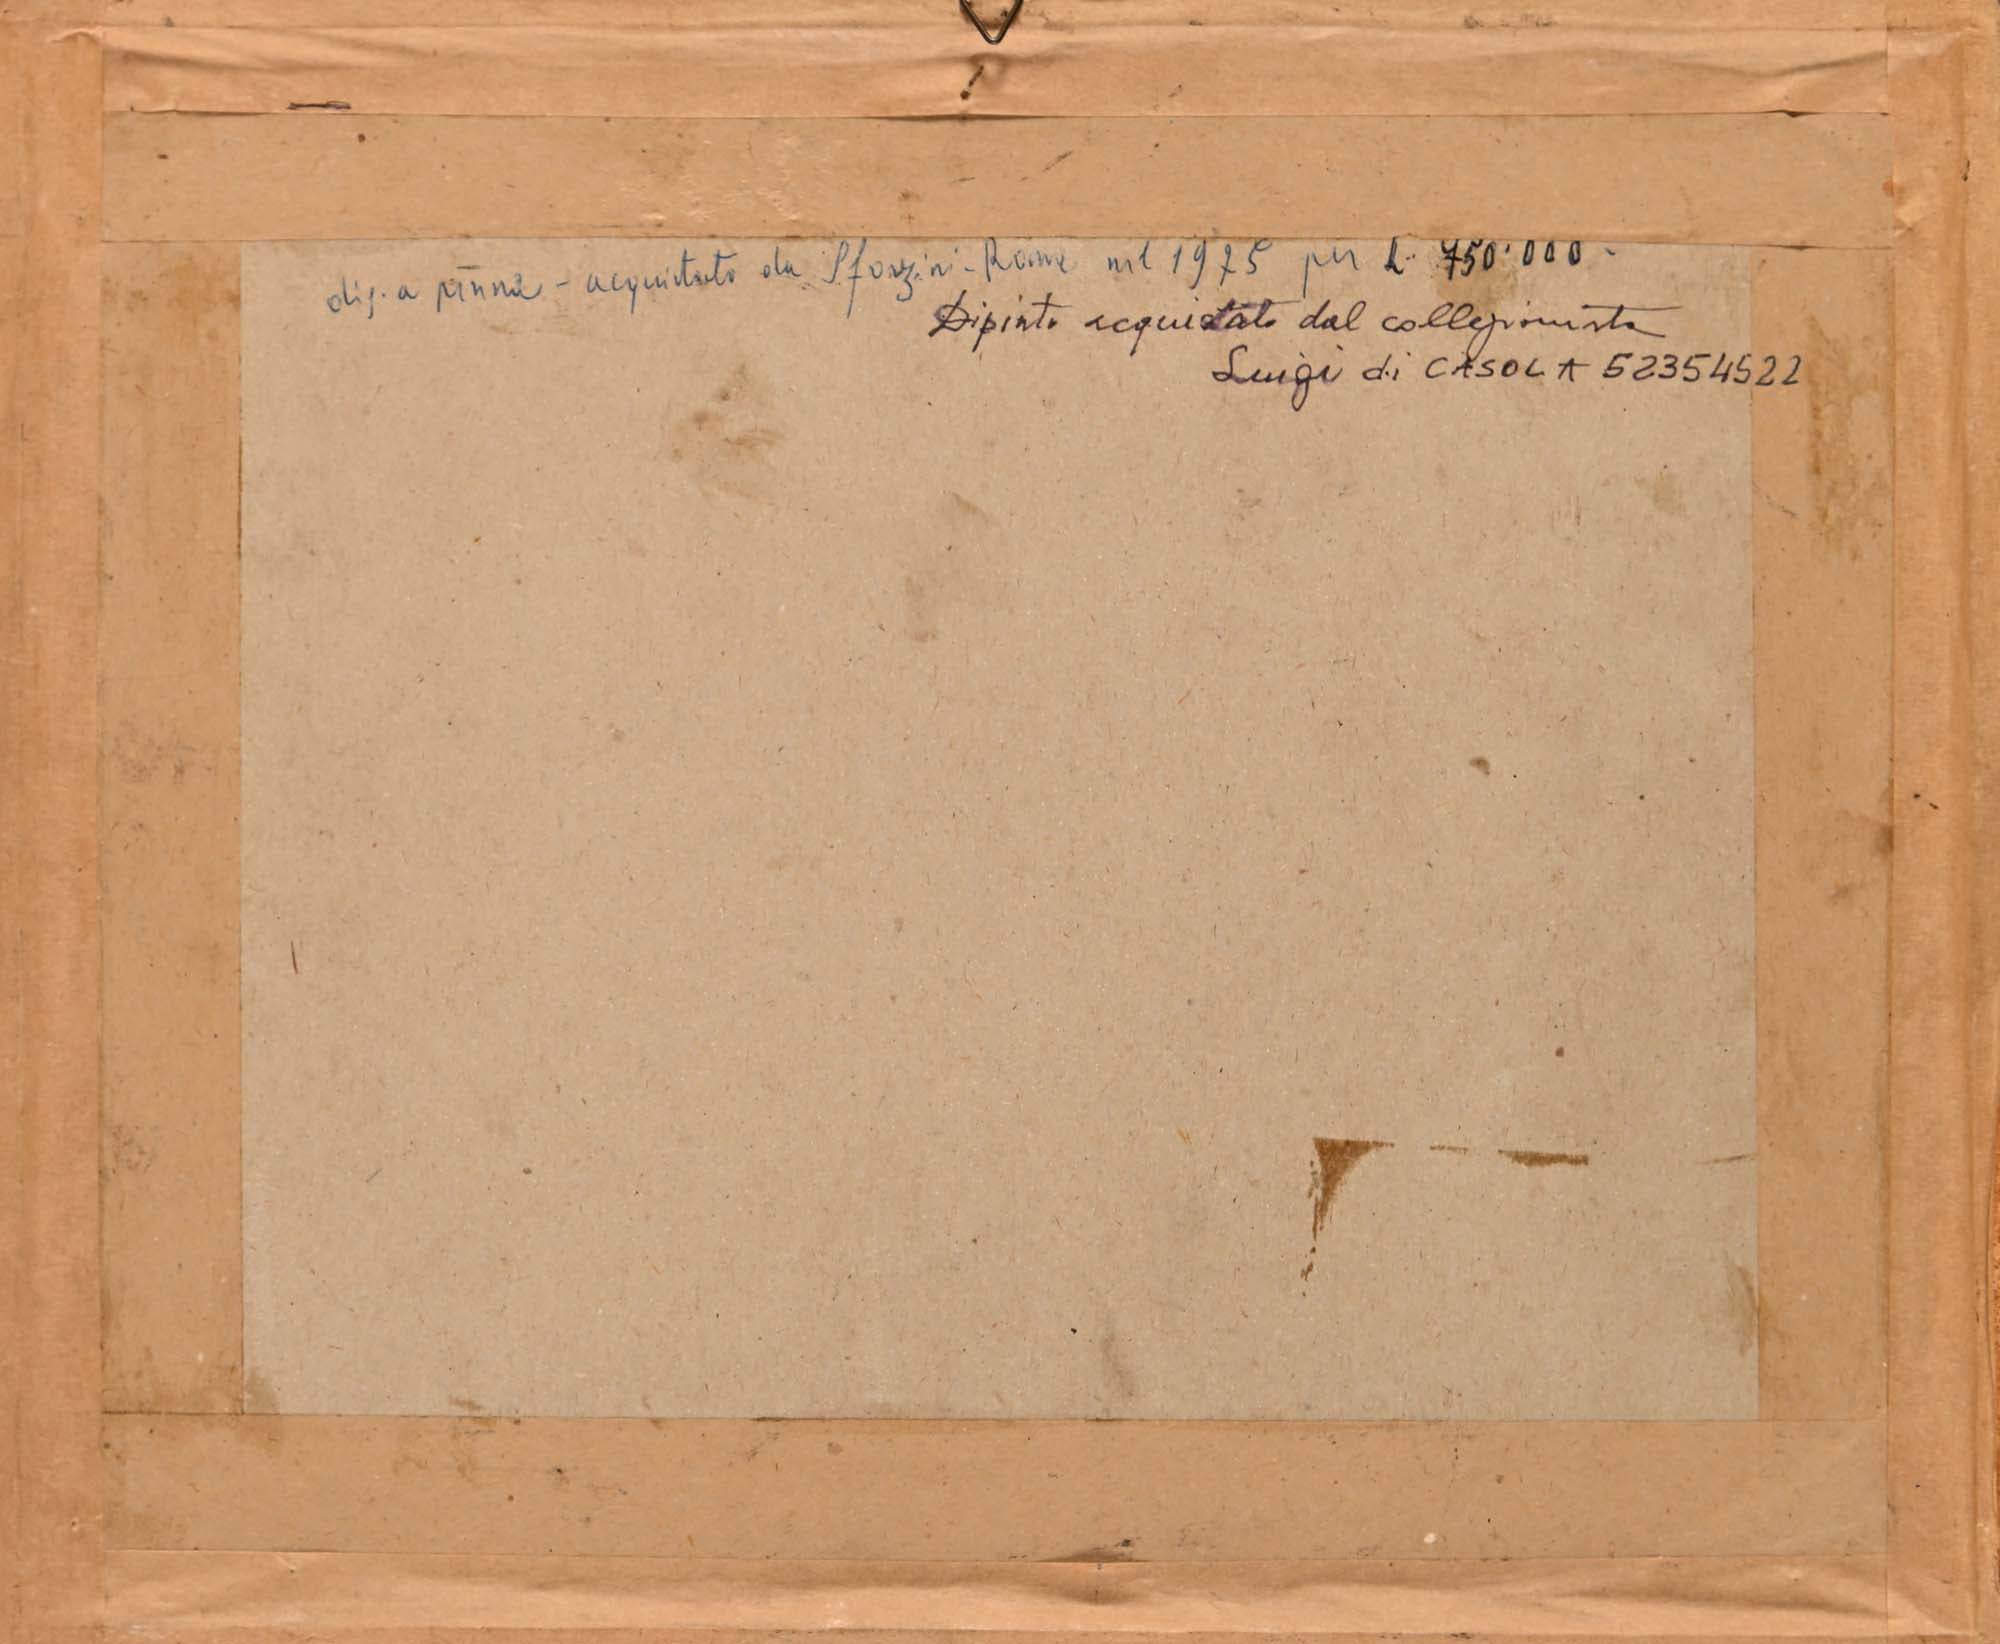 dis. a penna - acquistato da Sforzini - Roma nel 1975 per L. 750.000 -
Dipinto acquistato dal collezionista
Luigi di CASOLA 52354522